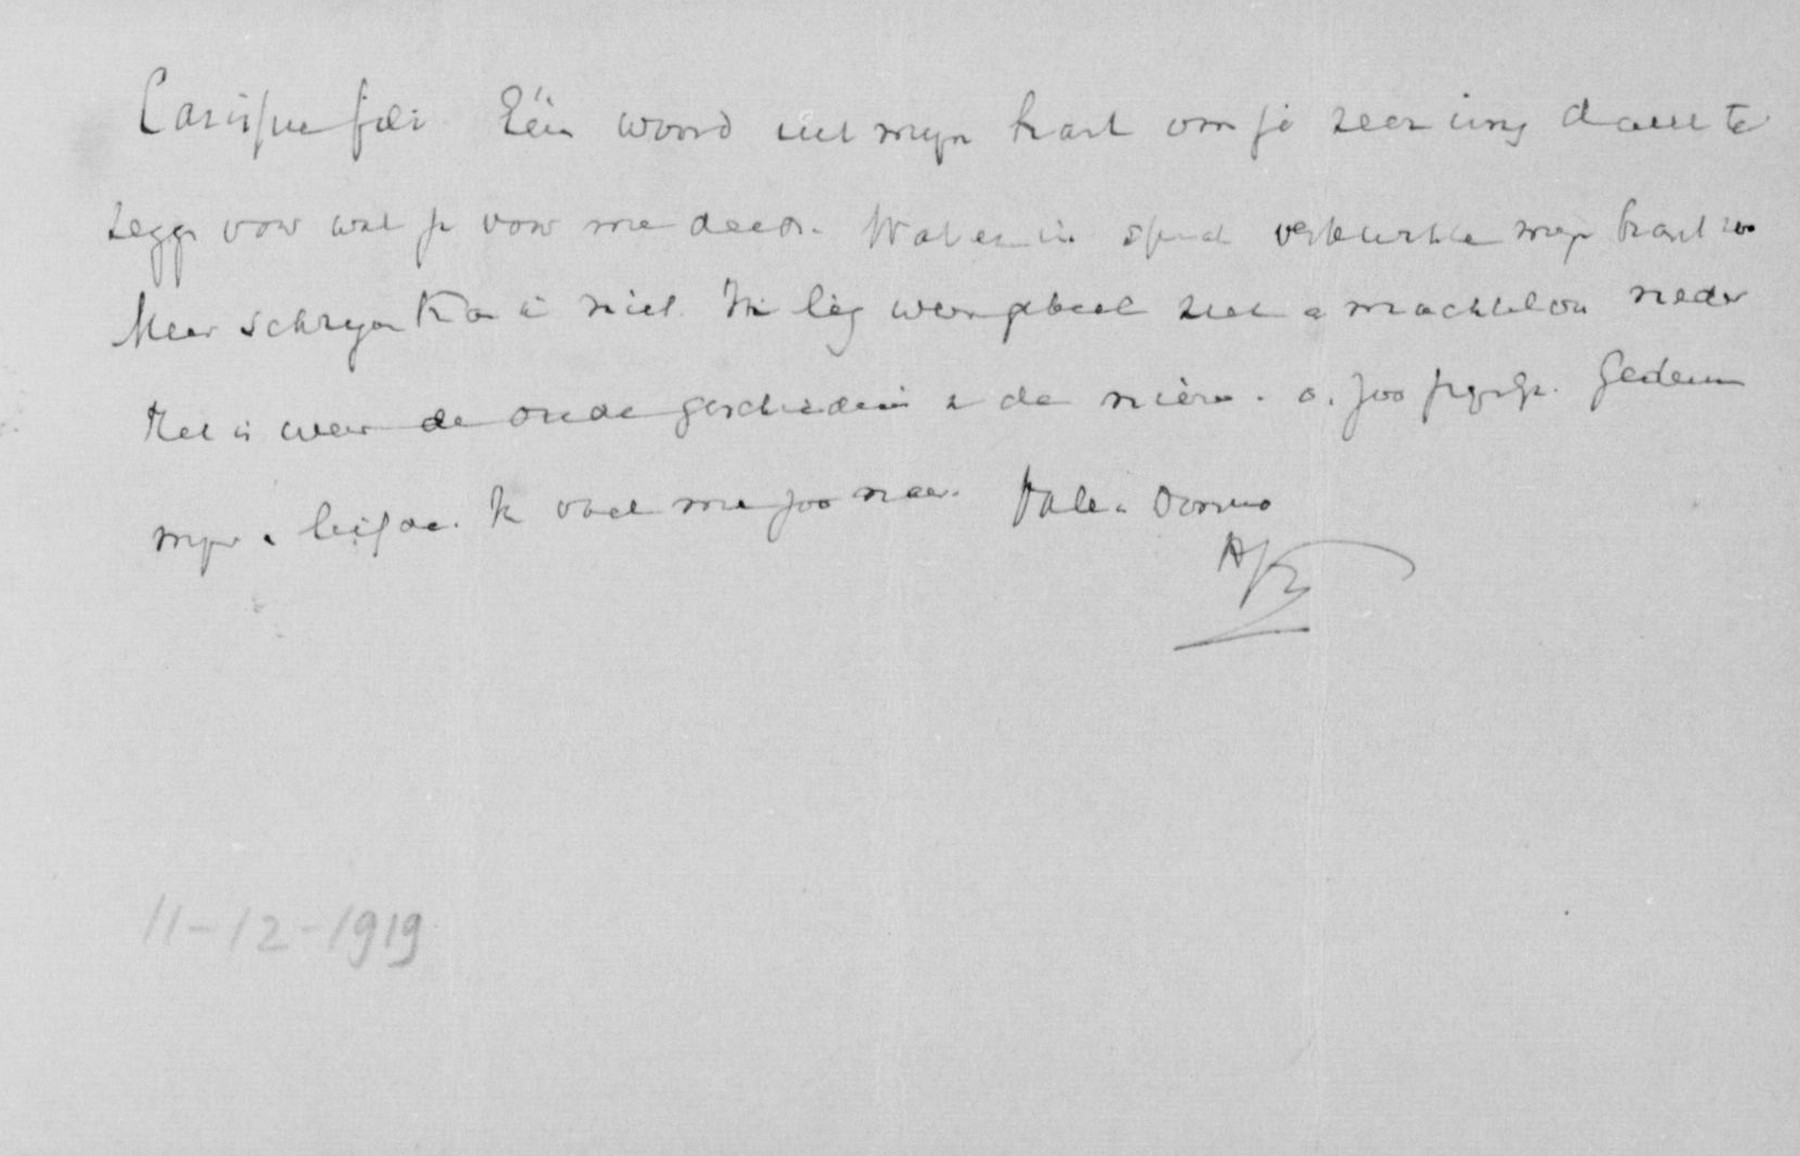 Carissime fili Eén woord uit mijn hart om je zeer innig dank te
zeggn voor wat je voor me deedt. Wat er in verkwikte mijn hart zoo
Meer schrijven kan ik niet. Ik lig weer geheel ziek en machteloos neder
Het is weer de oude geschiedenis de nieren. o, zoo pijnlijk. Gedenk
mijn liefde. Ik voel me zoo naar. Vale in Domino
AK
11-12-1919